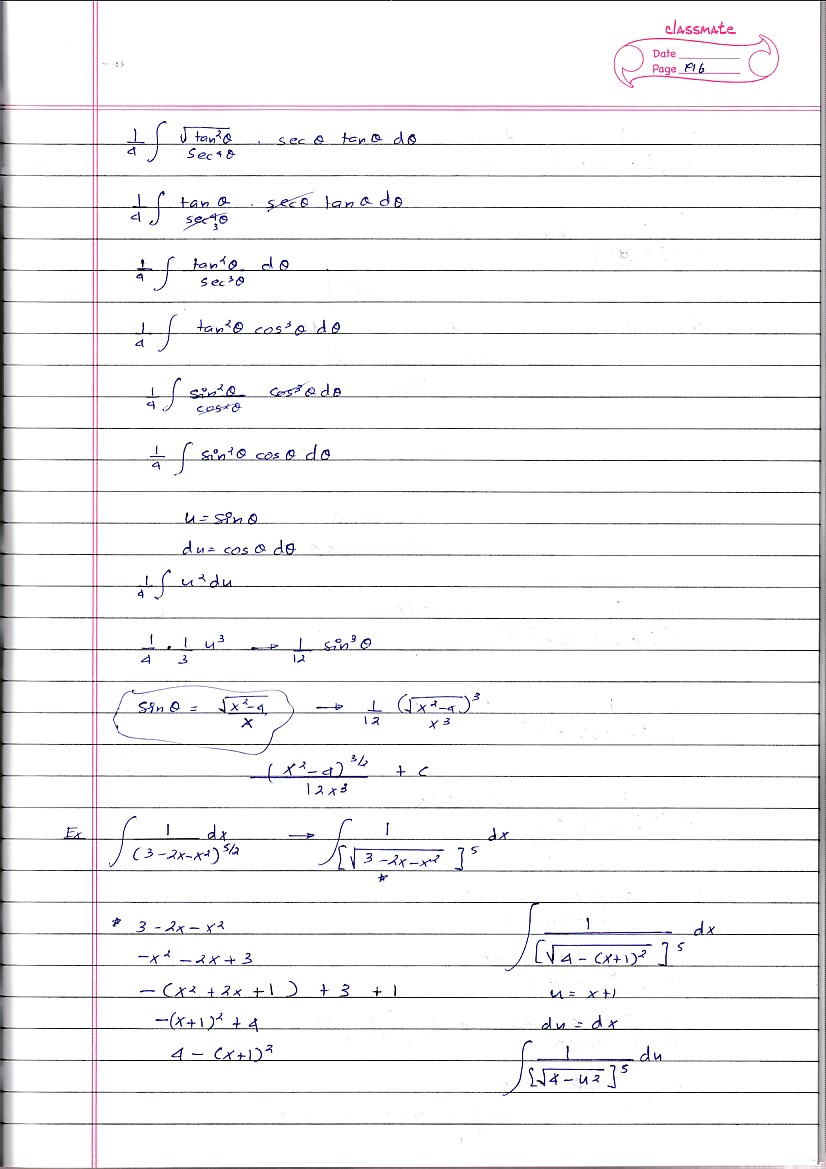 classmate
Date
Page
1/4 ∫ √tan²θ / sec⁴θ . sec θ tan θ dθ
1/4 ∫ tan θ / sec⁴θ 3 . sec θ tan θ dθ
1/4 ∫ tan²θ / sec³θ dθ
1/4 ∫ tan²θ cos³θ dθ
1/4 ∫ sin²θ / cos²θ cos³θ dθ
1/4 ∫ sin²θ cos θ dθ
u = sin θ
du = cos θ dθ
1/4 ∫ u² du
1/4 • 1/3 u³ → 1/12 sin³θ
sin θ = √(x²-4) / x → 1/12 (√(x²-4))³ / x³
(x²-4)^3/2 / 12x³ + c
Ex ∫ 1 / (3-2x-x²)^5/2 dx → ∫ 1 / [√(3-2x-x²)]⁵ dx
*
* 3-2x-x²
-x²-2x+3
-(x²+2x+1) +3 +1
-(x+1)²+4
4-(x+1)²
∫ 1 / [√(4-(x+1)²)]⁵ dx
u = x+1
du = dx
∫ 1 / [√(4-u²)]⁵ du